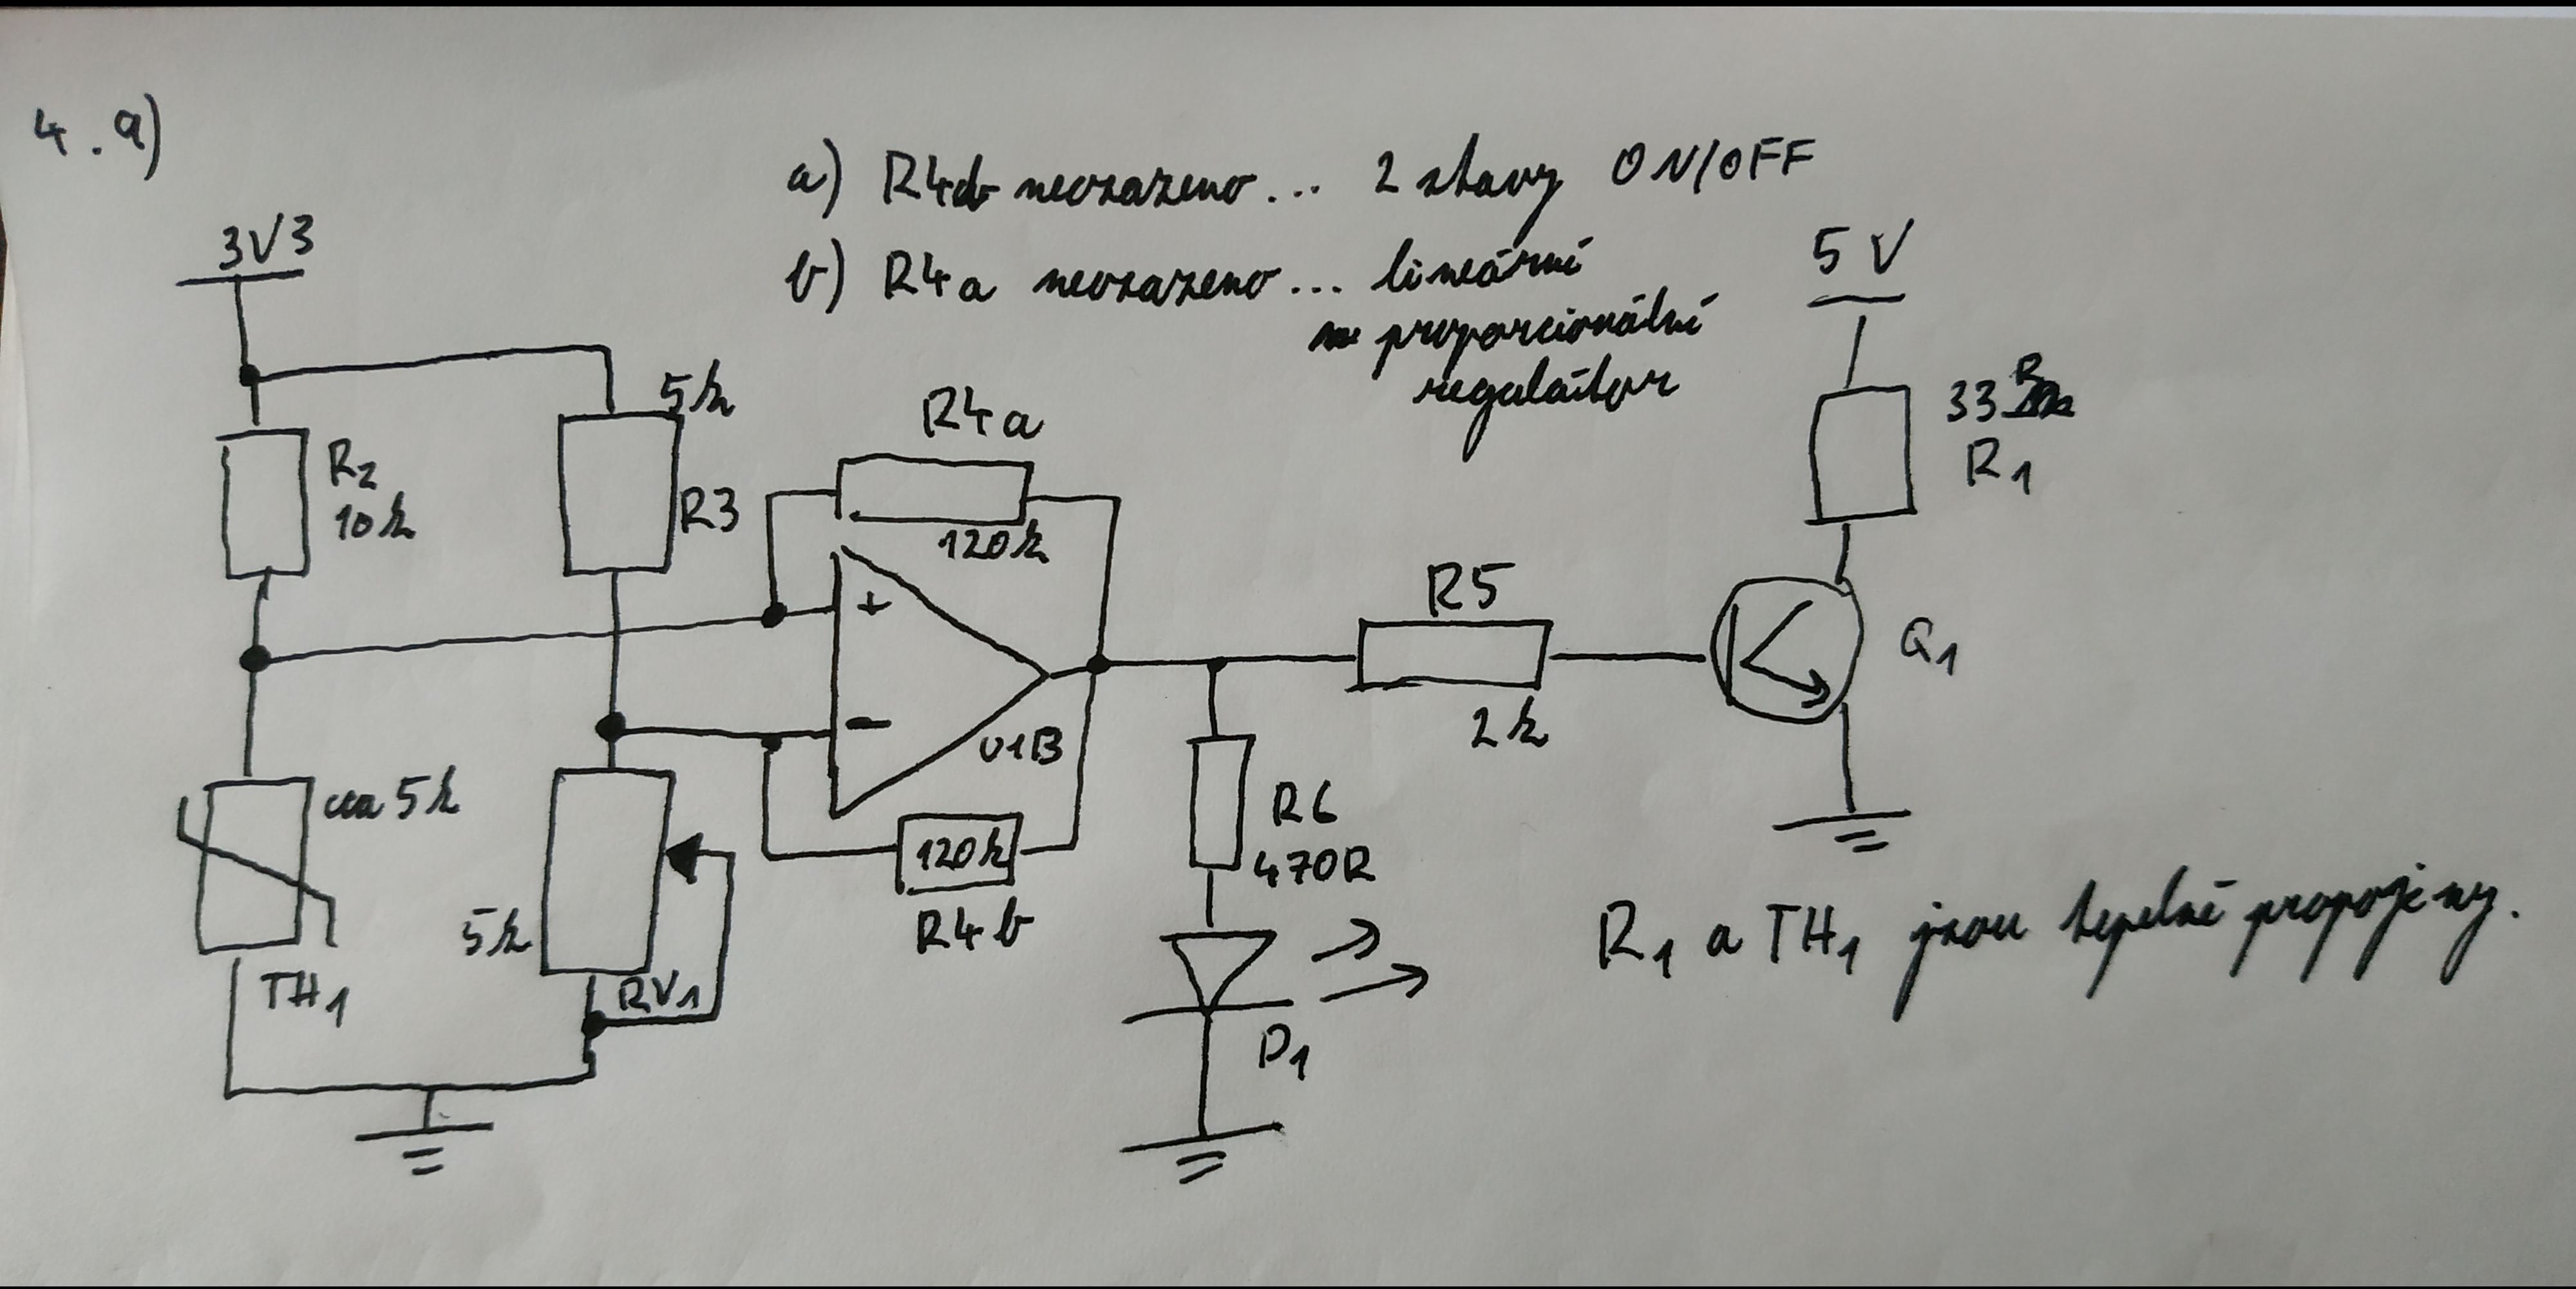 4.a)
a) R4b neosazeno... 2 stavy ON/OFF
b) R4a neosazeno... lineární
proporcionální
regulátor
3V3
5V
R2
10k
5k
R3
R4a
120k
33R
R1
+
-
U1B
R5
2k
Q1
cca 5k
TH1
5k
RV1
120k
R4b
R6
470R
D1
R1 a TH1 jsou tepelně propojeny.